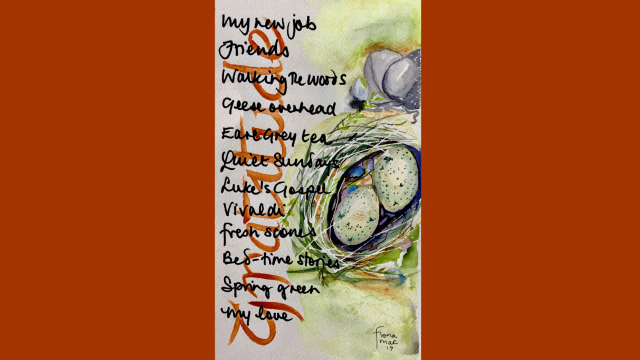 my new job
Friends
Walking The woods
Geese overhead
Earl Grey tea
Quiet Sundays
Luke's Gospel
Vivaldi
fresh scones
Bed-time stories
Spring green
my love
Gratitude
fiona
mac
19